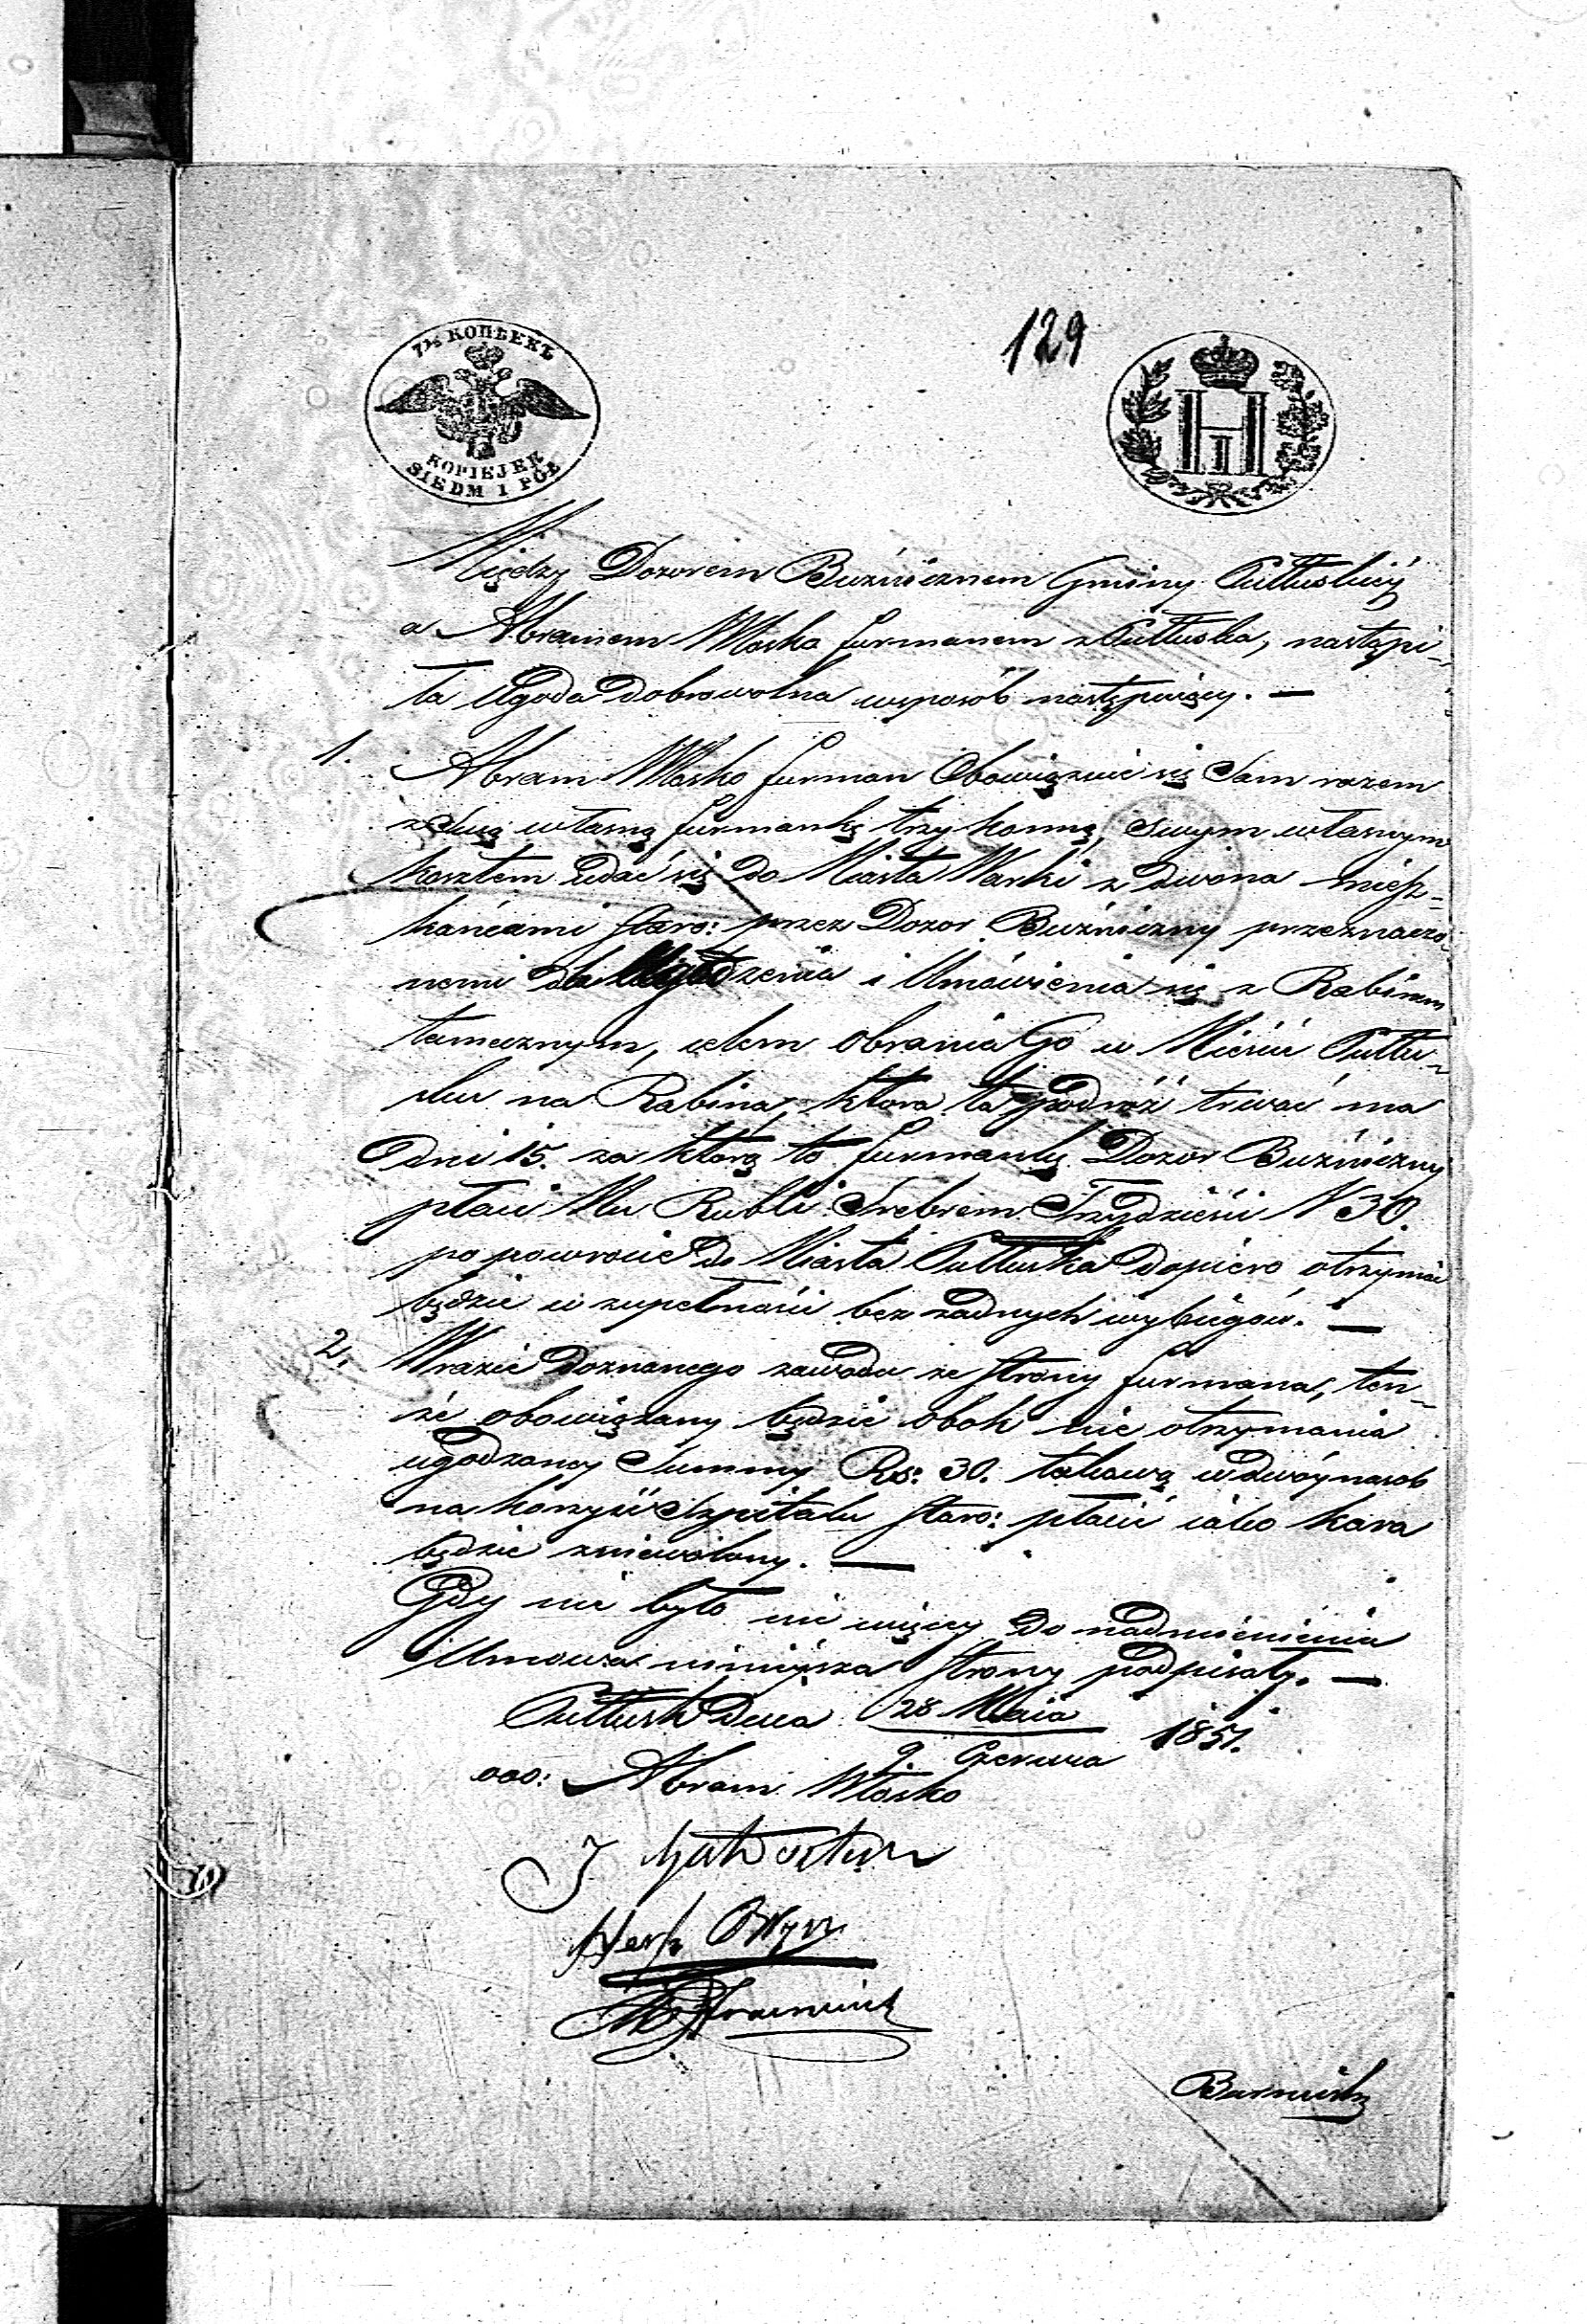 129
7½ КОПѢЕКЪ
KOPIEJEK
SIEDM I PÓŁ
Н I
Między Dozorem Bużnicznem Gminy Pułtuskiéy
a Abramem Włosko furmanem z Pułtuska, nastąpi-
ła Ugoda dobrowolna wsposób następuiący. —
1. Abram Włosko furman Obowiązuie się Sam razem
z Swą własną furmanką trzy konną, swym własnym
kosztem udać się do Miasta Warki z dwoma miesz-
kańcami Staro: przez Dozor Bużniczny przeznaczo-
nemi dla Ugodzenia i Umówienia się z Rabinem
tamecznym, celem obrania Go w Mieście Pułtu-
sku na Rabina, która ta podróż trwać ma
Dni 15. za którą to furmankę Dozor Bużniczny
płaci Mu Rubli Srebrem Trzydzieści N 30.
po powrocie do Miasta Pułtuska dopiero otrzymać
będzie w zupełności bez żadnych wybiegów. —
2. Wrazie doznanego zawodu ze strony furmana, ten-
że obowiązany będzie obok nie otrzymania
ugodzoney Summy Rs: 30. takową w dwóynasob
na korzyść Szpitalu Staro: płacić iako kara
będzie zniewolony. —
Gdy nic było nic więcey do nadmienienia
Umowa ninieysza strony podpisały. —
Pułtusk Dnia 28 Maia 1851.
9. Czerwca
ooo: Abram Włosko
J
Herß
Barnusk